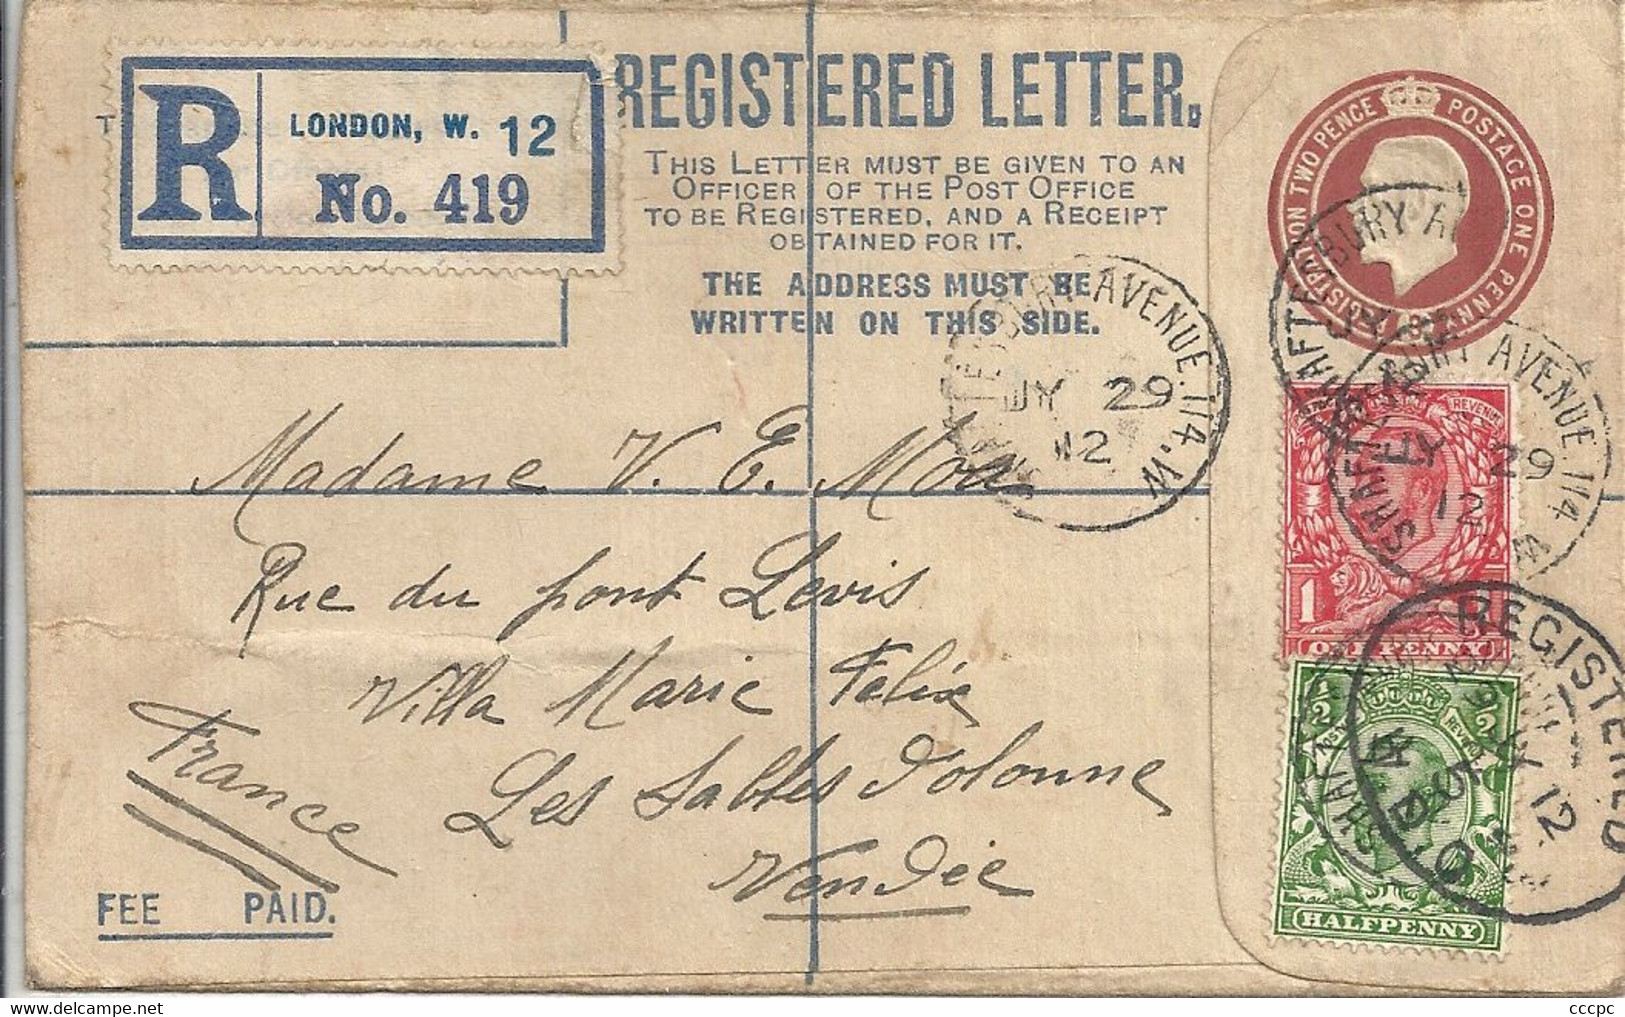 R
LONDON, W. 12
No. 419
REGISTERED LETTER.
THIS LETTER MUST BE GIVEN TO AN
OFFICER OF THE POST OFFICE
TO BE REGISTERED, AND A RECEIPT
OBTAINED FOR IT.
THE ADDRESS MUST BE
WRITTEN ON THIS SIDE.
REGISTRATION TWO PENCE POSTAGE ONE PENNY
SHAFTESBURY AVENUE. 114. W
JY 29
12
SHAFTESBURY AVENUE 114 W
JY 29
12
REVENUE
1
ONE PENNY
1/2
1/2
HALFPENNY
REGISTERED
12
Madame V. E.
Rue du pont Levis
Villa Marie Felix
Les Sables d'olonne
Vendée
France
FEE PAID.
cccpc